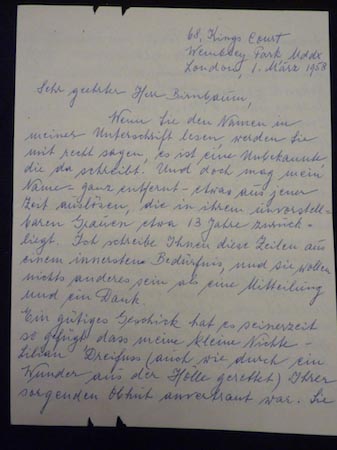 68, Kings Court
Wembley Park Mddx
London, 1. März 1958
Sehr geehrter Herr Birnbaum,
Wenn Sie den Namen in
meiner Unterschrift lesen werden Sie
mit recht sagen, es ist eine Unbekannte,
die da schreibt. Und doch mag mein
Name - ganz entfernt - etwas aus jener
Zeit auslösen, die in ihrem unvorstell-
baren Grauen etwa 13 Jahre zurück-
liegt. Ich schreibe Ihnen diese Zeilen aus
einem innersten Bedürfnis, und sie wollen
nichts anderes sein als eine Mitteilung
und ein Dank.
Ein gütiges Geschick hat es seinerzeit
so gefügt dass meine kleine Nichte -
Lilian Dreifuss (auch wie durch ein
Wunder aus der Hölle gerettet) Ihrer
sorgenden Obhut anvertraut war. Sie